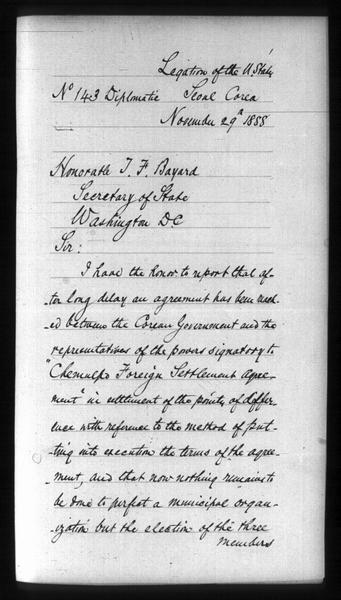 Legation of the U. States
No 143 Diplomatic Seoul Corea
November 29th 1888
Honorable T. F. Bayard
Secretary of State
Washington DC
Sir:
I have the honor to report that af-
-ter long delay an agreement has been reach-
-ed between the Corean Government and the
representatives of the powers signatory to
"Chemulpo Foreign Settlement agree-
ment" in settlement of the points of differ-
ence with reference to the method of put-
-ting into execution the terms of the agree-
-ment, and that now nothing remains to
be done to perfect a municipal organ-
-ization but the election of the three
members